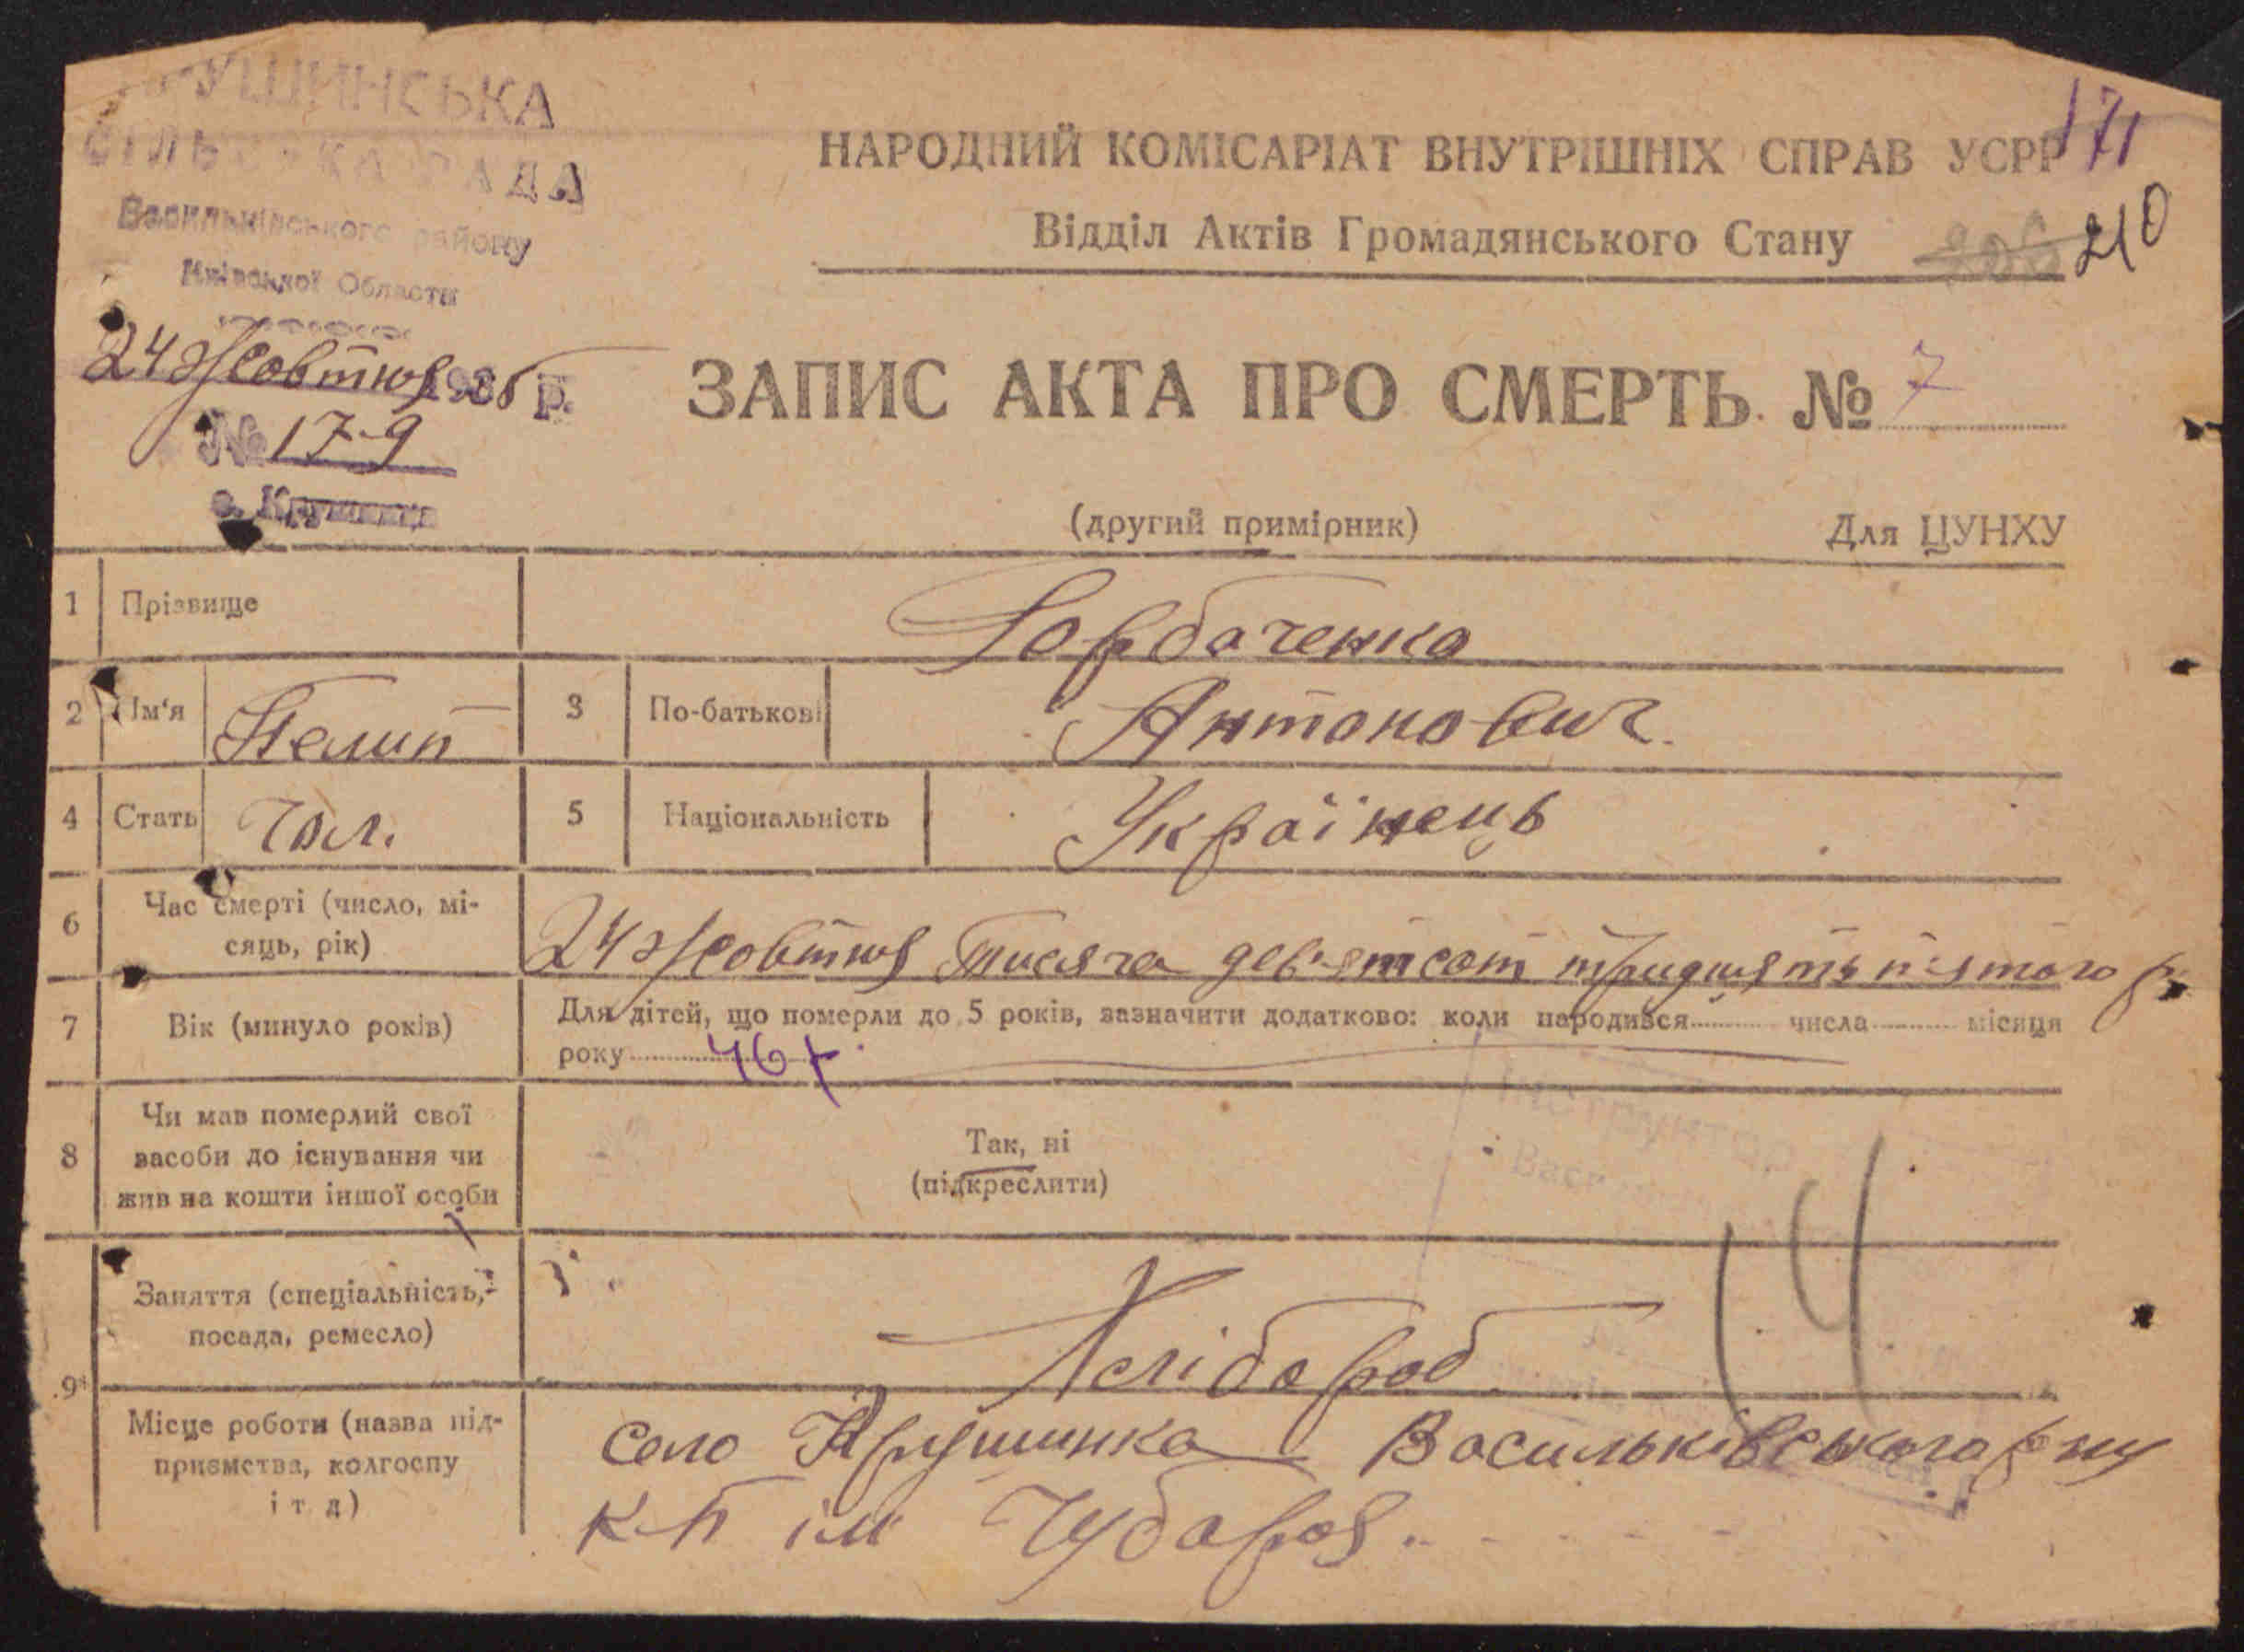 КРУШИНСЬКА
СІЛЬСЬКА РАДА
Васильківського району
Київської Области
24 Жовтня 1935 р.
№ 17-9
с. Крушинка
171
НАРОДНИЙ КОМІСАРІАТ ВНУТРІШНІХ СПРАВ УСРР
Відділ Актів Громадянського Стану
210
ЗАПИС АКТА ПРО СМЕРТЬ № 7
(другий примірник)
Для ЦУНХУ
1 Прізвище Горбаченко
2 Ім'я Пелип 3 По-батькові Антонович
4 Стать Чол. 5 Національність Українець
6 Час смерті (число, місяць, рік) 24 Жовтня тисяча дев'ятсот тридцять п'ятого р
7 Вік (минуло років) Для дітей, що померли до 5 років, зазначити додатково: коли народився числа місяця
року 46 р
8 Чи мав померлий свої
засоби до існування чи
жив на кошти іншої особи
Так, ні
(підкреслити)
14
9 Заняття (спеціальність,
посада, ремесло)
Хлібороб
Місце роботи (назва під-
приємства, колгоспу
і т д)
село Крушинка Васильківського р-ну
к-п ім Чубаря